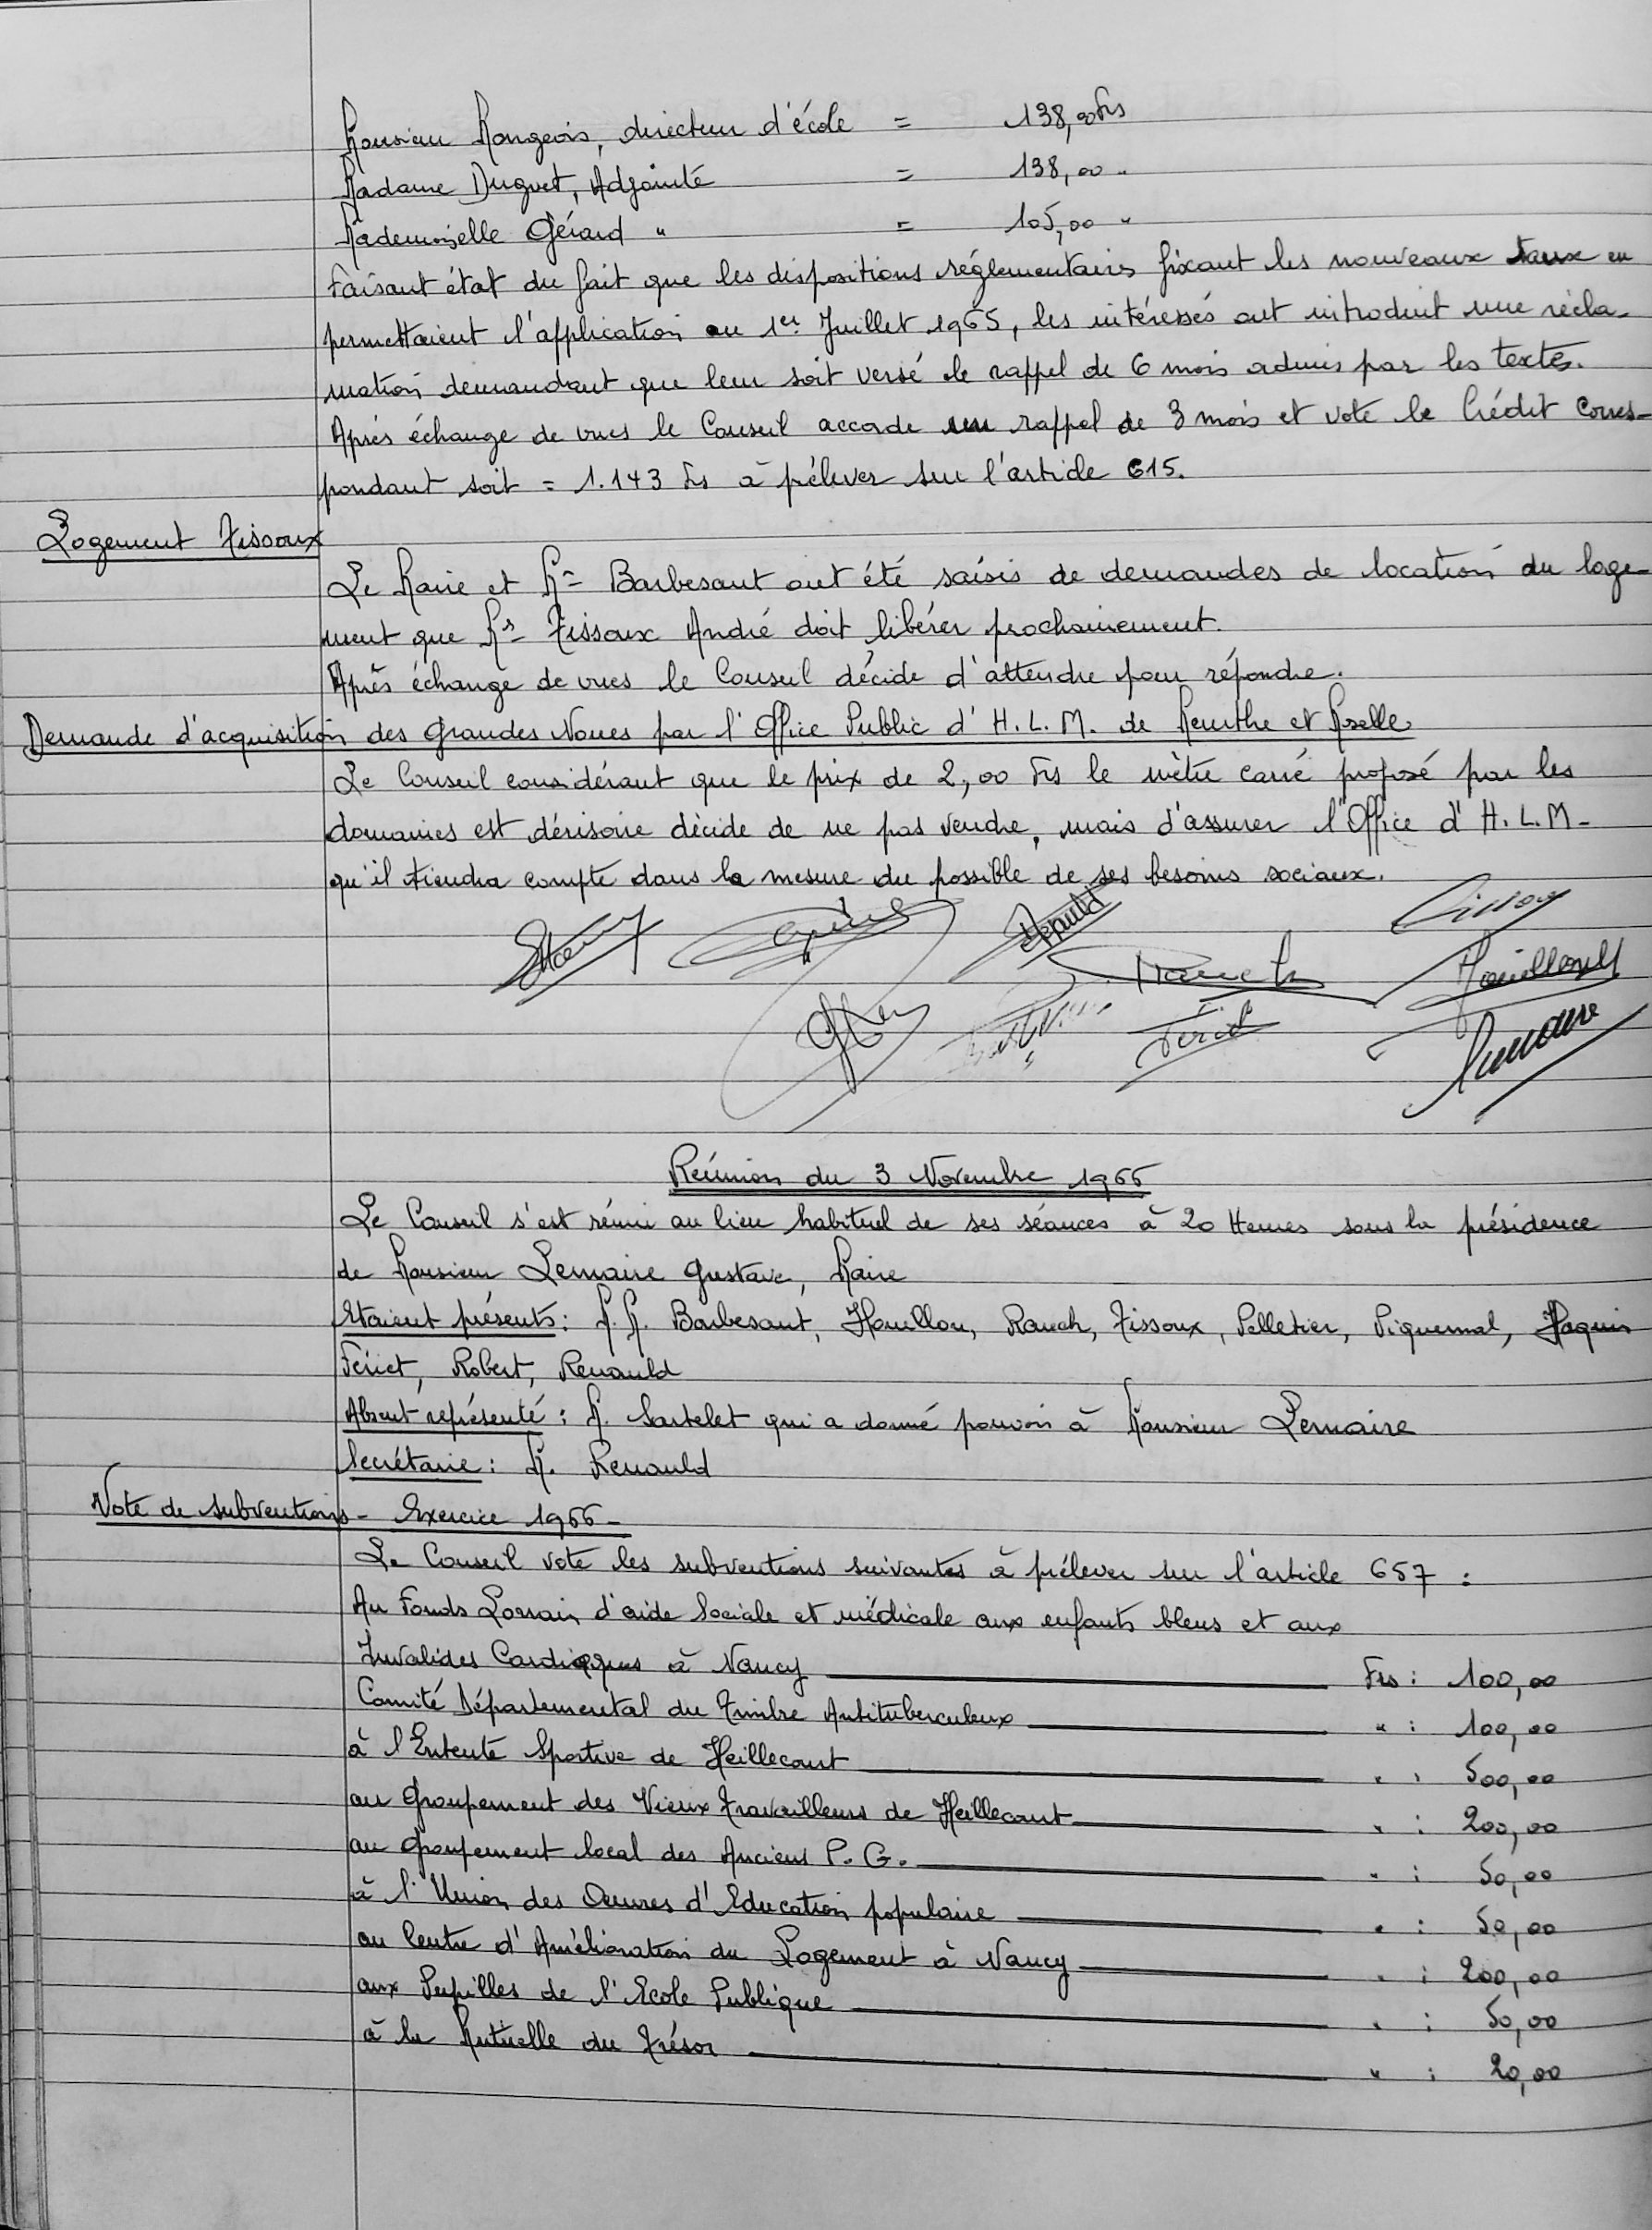 Monsieur Mongeois, directeur d'école = 138,00 Frs
Madame Duguet, Adjointe = 138,00 "
Mademoiselle Gérard " = 105,00 "
Faisant état du fait que les dispositions réglementaires fixant les nouveaux taux en
permettaient l'application au 1er Juillet 1965, les intéressés ont introduit une récla-
mation demandant que leur soit versé le rappel de 6 mois admis par les textes.
Après échange de vues le Conseil accorde un rappel de 3 mois et vote le Crédit corres-
pondant soit = 1.143 Frs à prélever sur l'article 615.
Logement Tissoux
Le Maire et Mr Barbesant ont été saisis de demandes de location du loge-
ment que Mr Tissoux André doit libérer prochainement.
Après échange de vues le Conseil décide d'attendre pour répondre.
Demande d'acquisition des Grandes Noues par l'Office Public d'H.L.M. de Meurthe et Moselle
Le Conseil considérant que le prix de 2,00 Frs le mètre carré proposé par les
domaines est dérisoire décide de ne pas vendre, mais d'assurer l'Office d'H.L.M-
qu'il tiendra compte dans la mesure du possible de ses besoins sociaux.
Renauld
Rauch
Houillon
Feriet
Lemaire
Réunion du 3 Novembre 1966
Le Conseil s'est réuni au lieu habituel de ses séances à 20 Heures sous la présidence
de Monsieur Lemaire Gustave, Maire
Etaient présents : M.M. Barbesant, Houillon, Rauch, Tissoux, Pelletier, Piquemal, Haquin
Feriet, Robert, Renauld
Absent représenté : M. Sartelet qui a donné pouvoir à Monsieur Lemaire
Secrétaire : M. Renauld
Vote de subventions - Exercice 1966 -
Le Conseil vote les subventions suivantes à prélever sur l'article 657 :
Au Fonds Lorrain d'aide Sociale et médicale aux enfants bleus et aux
Invalides Cardiaques à Nancy Frs : 100,00
Comité Départemental du Timbre Antituberculeux " : 100,00
à l'Entente Sportive de Heillecourt " : 500,00
au Groupement des Vieux Travailleurs de Heillecourt " : 200,00
au Groupement local des Anciens P.G. " : 50,00
à l'Union des Oeuvres d'Education populaire " : 50,00
au Centre d'Amélioration du Logement à Nancy " : 200,00
aux Pupilles de l'Ecole Publique " : 50,00
à la Mutuelle du Trésor " : 20,00